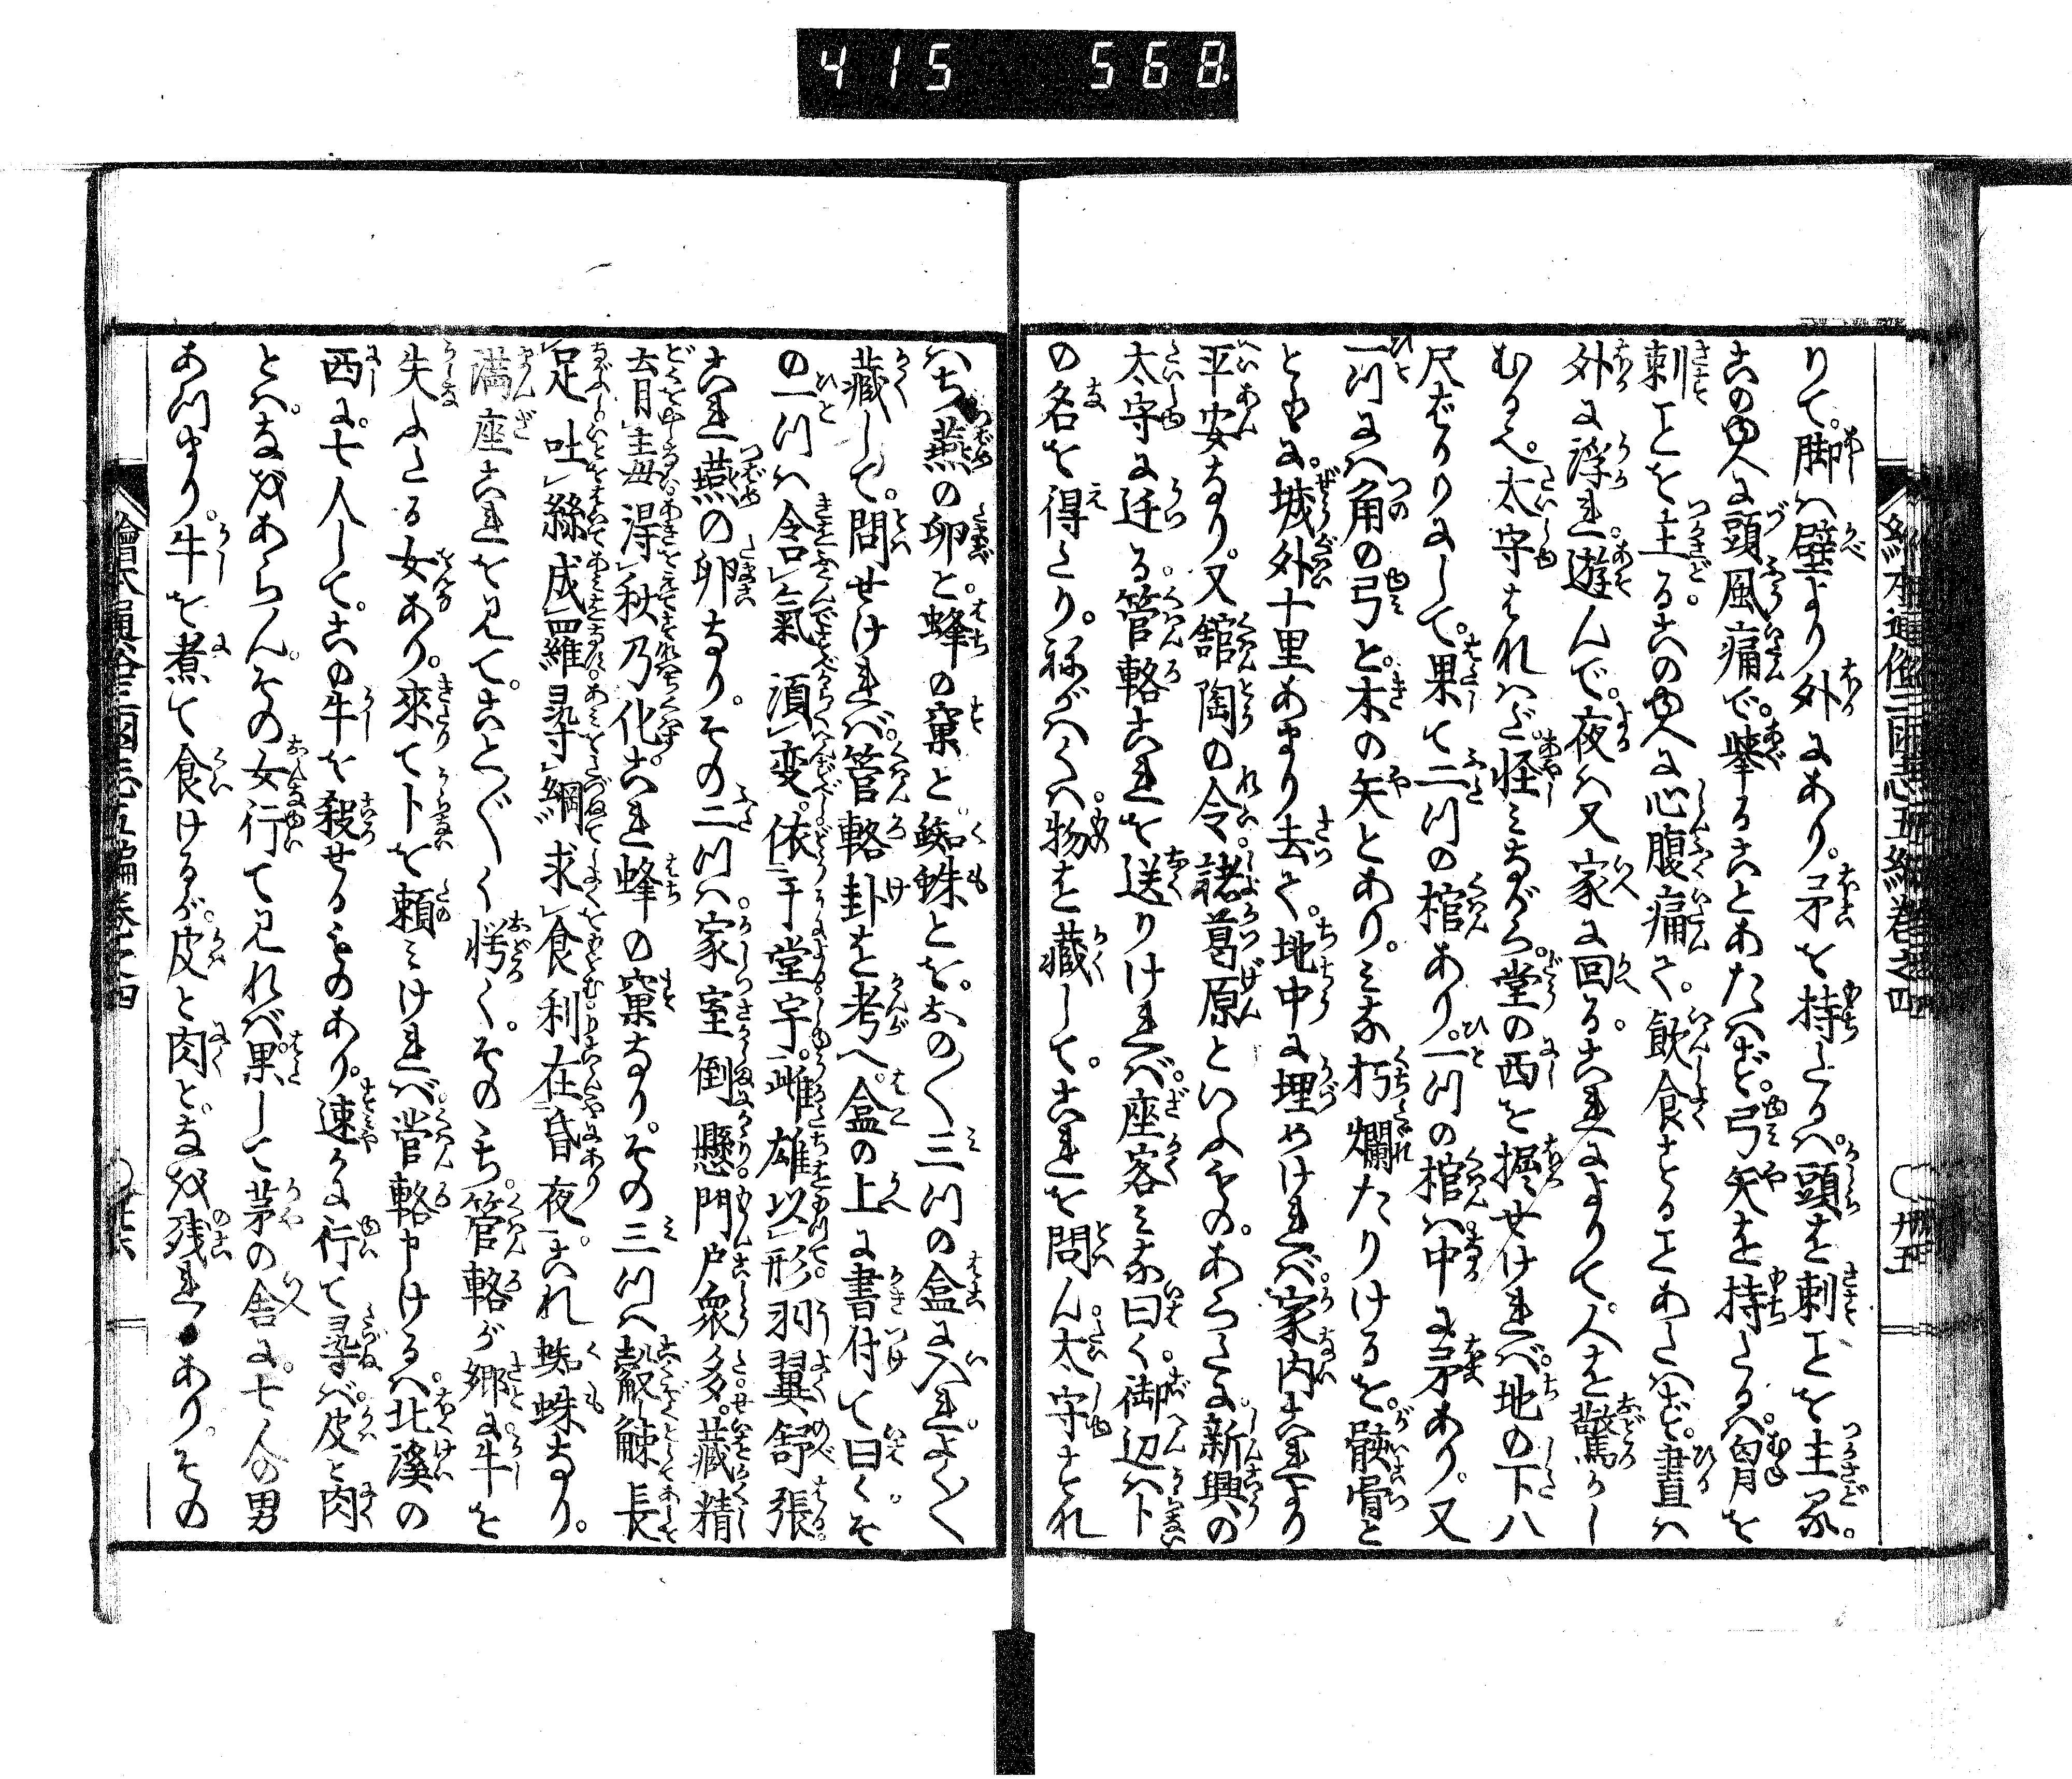 415 568
絵本通俗三国志五編巻之四 廿五
りて。脚は壁より外にあり。矛を持たるは。頭を刺ことを主る。
この男人に頭風痛で。挙ることあたはず。弓矢を持たるは。胸を
刺ことを主る。この男人に心腹痛て。飲食することあたはず。昼は
外に浮れ遊んで。夜は又家に回る。これによりて。人を驚かし
むるん。太守これハど怪みながら。堂の西を掘せければ。地の下八
尺ばかりにして。果て二ツの棺あり。一ツの棺は。中に矛あり。又
一ツには角の弓と。木の矢とあり。みな朽爛たりけるを。骸骨と
ともに。城外十里あまり去て。地中に埋めければ。家内これより
平安なり。又舘陶の令。諸葛原といふもの。あらたに。新興の
太守に迁る。管輅これを送りければ。座客みな曰く。御辺は卜
の名を得たり。ねがはくは。物を蔵して。これを問ん。太守それ
はち燕の卵と。蜂の窠と。蜘蛛とを。おのく三ツの盒に入れ。よくく
蔵して。問せければ。管輅卦を考へ。盒の上に書付て曰くそ
の一ツは含氣須変。依于堂宇。雌雄以形。羽翼舒張
これ燕の卵なり。その二ツは。家室倒懸。門戸衆多。蔵精
育毒。得秋乃化。これ蜂の窠なり。その三ツは。觳觫長
足。吐絲成羅。尋網求食。利在昏夜。これ蜘蛛なり。
満座これを見て。ことぐく愕く。そのゝち。管輅が郷に。牛を
失ふたる女あり。来て卜を頼みければ。管輅申けるは。北溪の
西に。七人して。この牛を殺せるものあり。速かに行て尋ば。皮と肉
とは。なをあらん。その女行て見れば。果して茅の舎に。七人の男
あつまり。牛を煮て食けるが。皮と肉と。なを残れるあり。その
絵本通俗三国志五編巻之四 廿六